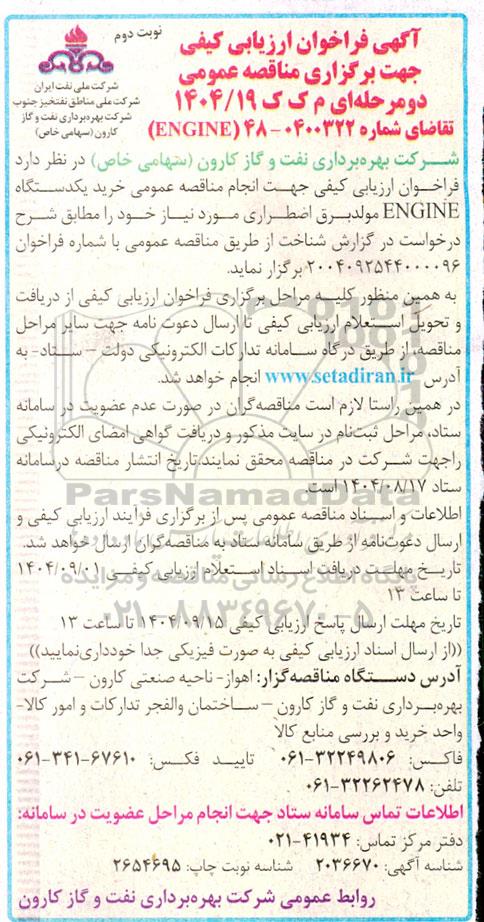 نوبت دوم
شرکت ملی نفت ایران
شرکت ملی مناطق نفتخیز جنوب
شرکت بهره‌برداری نفت و گاز
کارون (سهامی خاص)
آگهی فراخوان ارزیابی کیفی
جهت برگزاری مناقصه عمومی
دومرحله‌ای م ک ک ۱۴۰۴/۱۹
تقاضای شماره ۰۴۰۰۳۲۲–۴۸ (ENGINE)
شــرکت بهره‌برداری نفت و گاز کارون (سهامی خاص) در نظر دارد
فراخـوان ارزیابی کیفی جهـت انجام مناقصه عمومی خرید یکدسـتگاه
ENGINE مولدبـرق اضطـراری مـورد نیـاز خـود را مطابق شـرح
درخواست در گزارش شناخت از طریق مناقصه عمومی با شماره فراخوان
۲۰۰۴۰۹۲۵۴۴۰۰۰۰۹۶ برگزار نماید.
به همین منظور کلیـه مراحل برگزاری فراخوان ارزیابی کیفی از دریافت
و تحویل اسـتعلام ارزیابی کیفی تا ارسال دعوت نامه جهت سایر مراحل
مناقصه، از طریق درگاه سـامانه تدارکات الکترونیکی دولت – سـتاد- به
آدرس www.setadiran.ir انجام خواهد شد.
در همین راستا لازم است مناقصه‌گران در صورت عدم عضویت در سامانه
ستاد، مراحل ثبت‌نام در سایت مذکور و دریافت گواهی امضای الکترونیکی
راجهت شـرکت در مناقصه محقق نمایند.تاریخ انتشار مناقصه درسامانه
ستاد ۱۴۰۴/۰۸/۱۷ است.
ParsNamadData
اطلاعات و اسـناد مناقصه عمومی پس از برگزاری فرآیند ارزیابی کیفی و
ارسال دعوت‌نامه از طریق سامانه ستاد به مناقصه‌گران ارسال خواهد شد.
تاریخ مهلت دریافت اسـناد اسـتعلام ارزیابی کیفـی ۱۴۰۴/۰۹/۰۱
تا ساعت ۱۳
پایگاه اطلاع رسانی مناقصه و مزایده
۰۲۱-۸۸۳۴۹۶۷۰-۵
تاریخ مهلت ارسال پاسخ ارزیابی کیفی ۱۴۰۴/۰۹/۱۵ تا ساعت ۱۳
((از ارسال اسناد ارزیابی کیفی به صورت فیزیکی جدا خودداری‌نمایید))
آدرس دسـتگاه مناقصه‌گزار: اهواز- ناحیه صنعتی کارون – شـرکت
بهره‌بـرداری نفت و گاز کارون – ساختمان والفجر تدارکات و امور کالا-
واحد خرید و بررسی منابع کالا
فاکس: ۳۲۲۴۹۸۰۶-۰۶۱ تایید فکس: ۶۷۶۱۰-۳۴۱-۰۶۱
تلفن: ۳۲۲۶۲۴۷۸-۰۶۱
اطلاعات تماس سامانه ستاد جهت انجام مراحل عضویت در سامانه:
دفتر مرکز تماس: ۴۱۹۳۴-۰۲۱
شناسه آگهی: ۲۰۳۶۶۷۰ شناسه نوبت چاپ: ۲۶۵۴۶۹۵
روابط عمومی شرکت بهره‌برداری نفت و گاز کارون